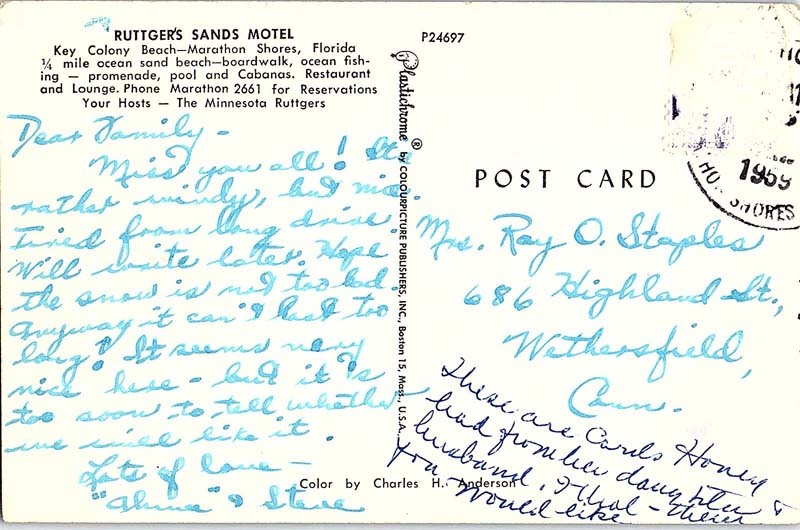 RUTTGER'S SANDS MOTEL
Key Colony Beach—Marathon Shores, Florida
¼ mile ocean sand beach—boardwalk, ocean fish-
ing — promenade, pool and Cabanas. Restaurant
and Lounge. Phone Marathon 2661 for Reservations
Your Hosts — The Minnesota Ruttgers
Dear Family—
Miss you all! It's
rather windy, but nice.
Tired from long drive.
Will write later. Hope
the snow is not too bad.
Anyway it can't last too
long! It seems very
nice here - but it is
too soon to tell whether
we will like it.
Lots of love—
& Steve
Plastichrome ® by COLOURPICTURE PUBLISHERS, INC., Boston 15, Mass., U.S.A.
Color by Charles H. Anderson
P24697
POST CARD
1959
SHORES
Mrs. Ray O. Staples
686 Highland St.,
Wethersfield,
Conn.
These are Cards Honey
had from her daughter &
husband. I thot
you would like